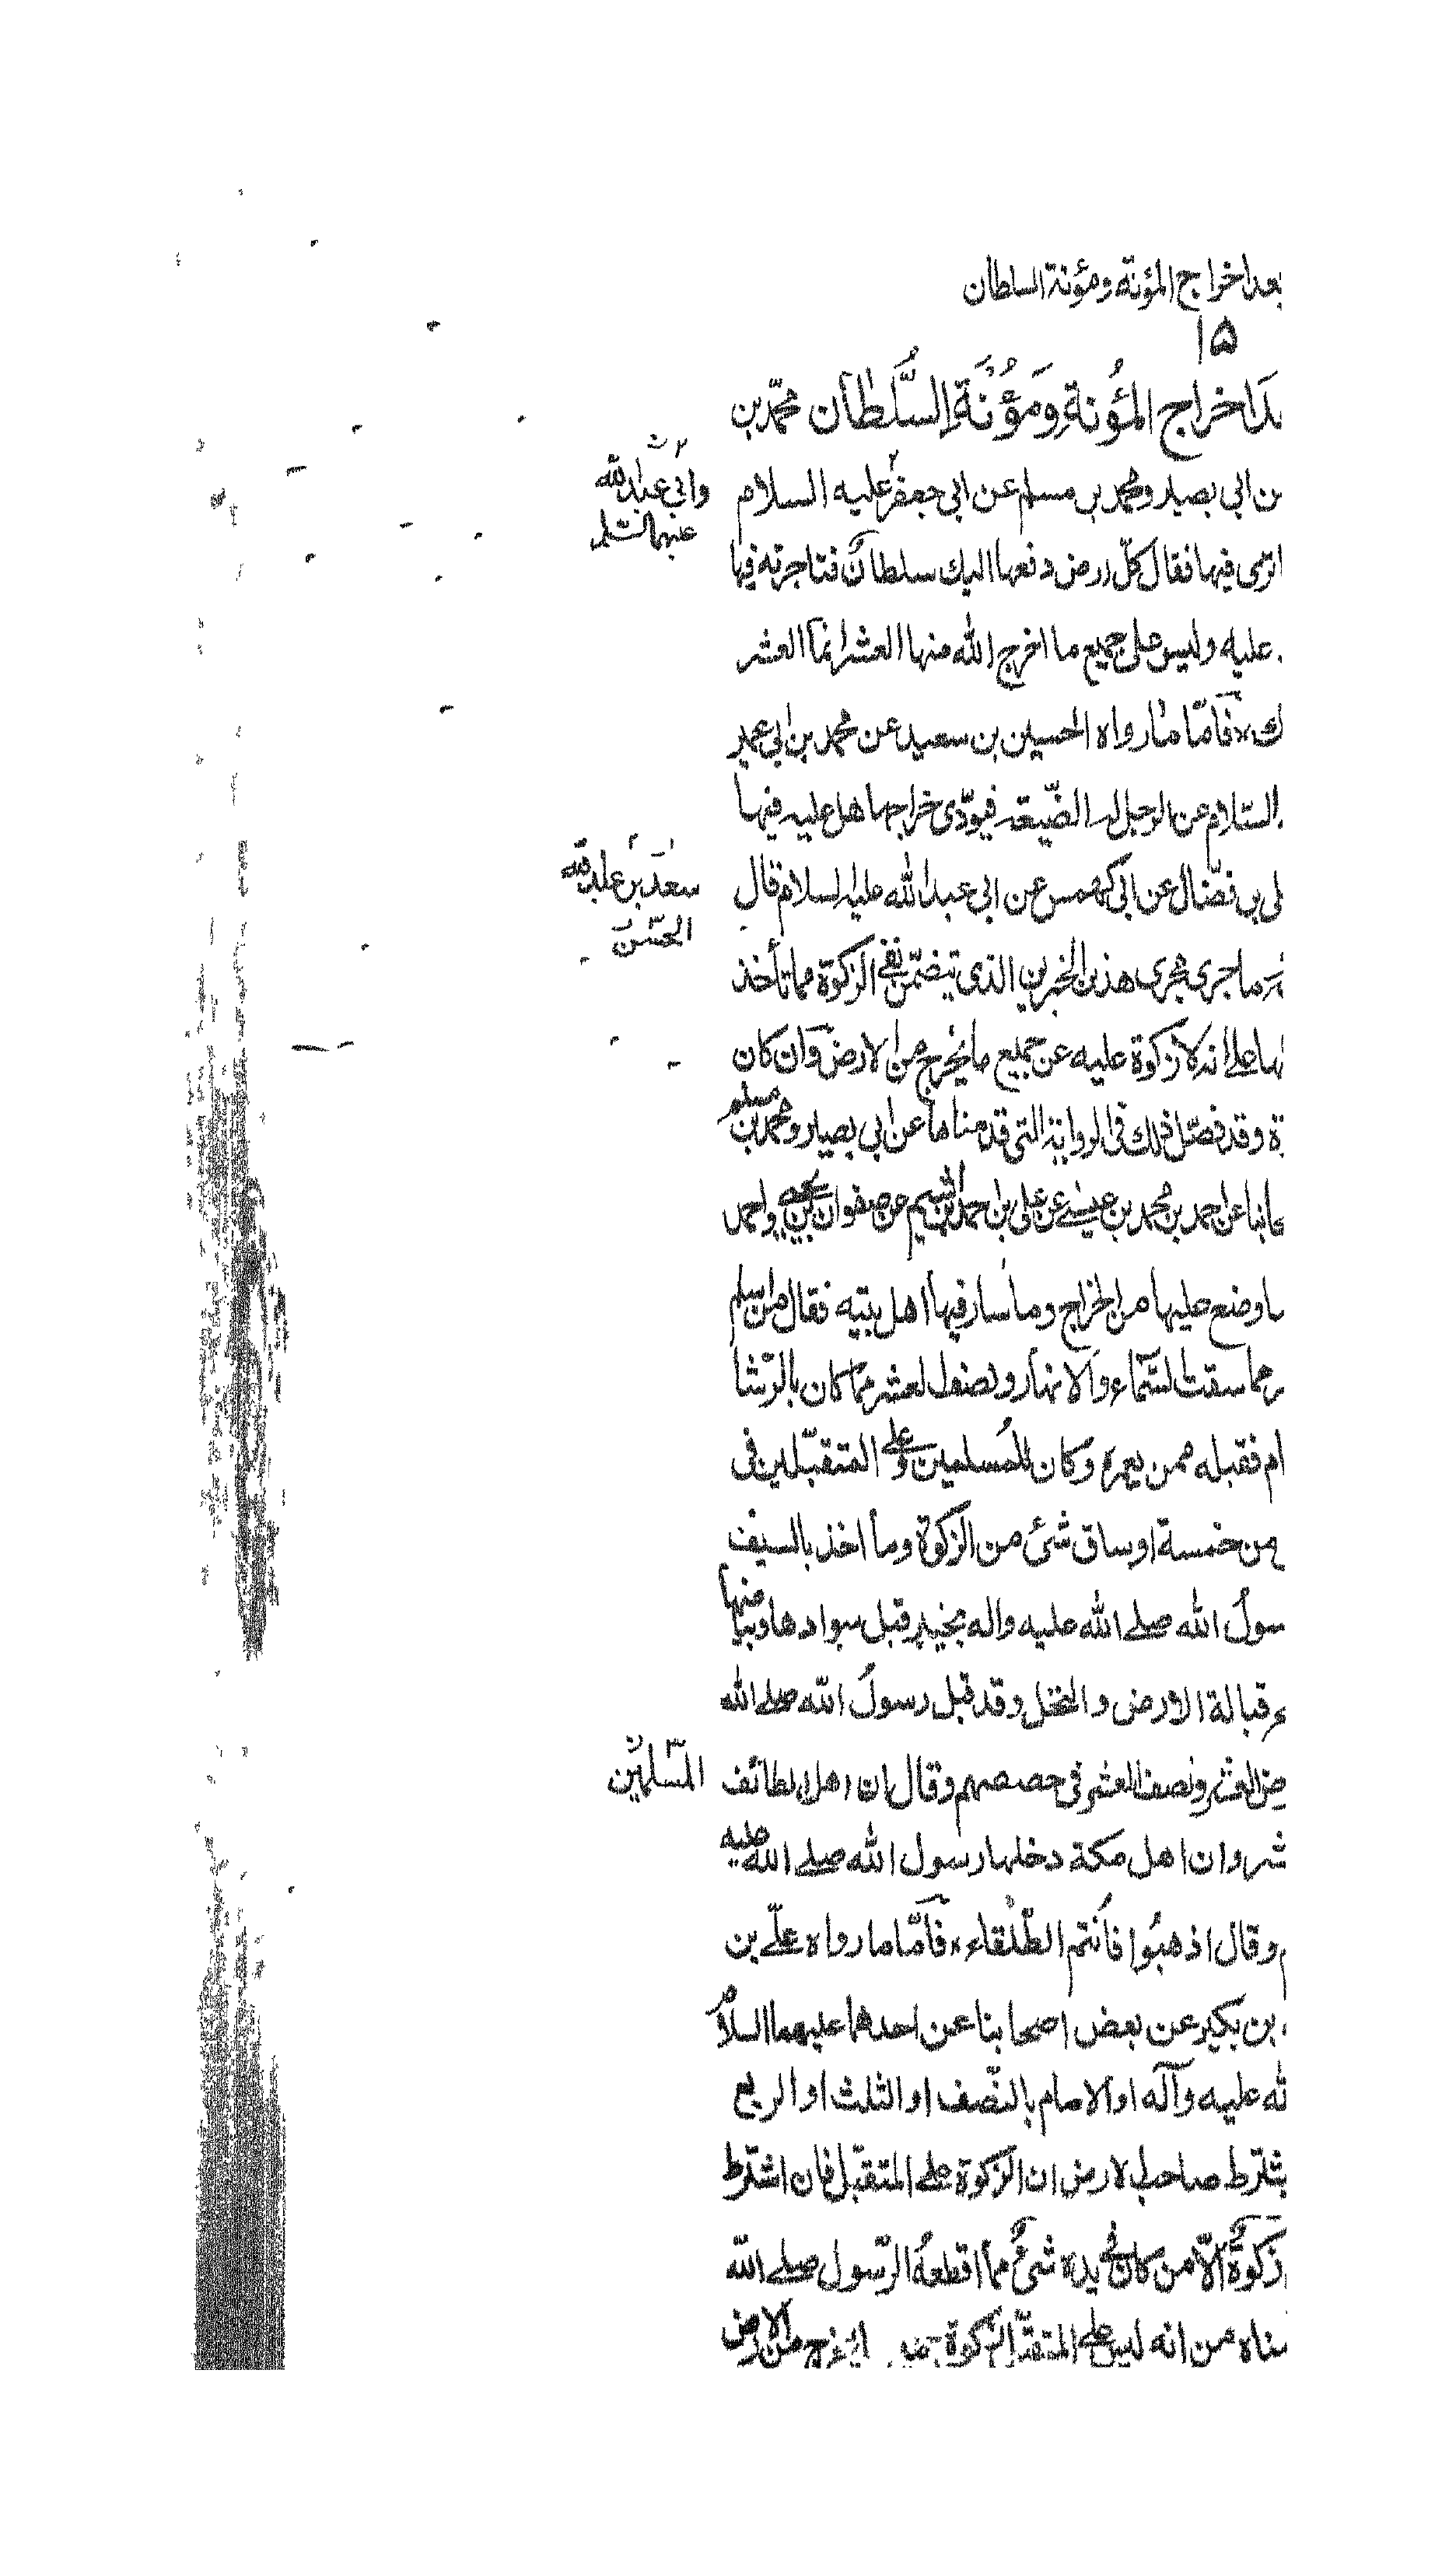 بعد اخراج المؤنة ومؤنة السلطان
١۵
بعد اخراج المؤنة ومؤنة السلطان محمد بن
عن ابى بصير ومحمد بن مسلم عن ابى جعفر عليه السلام
وابى عبد الله
عليهما السلم
ترى فيها فقال كل ارض دفعها اليك سلطان فتاجرته فيها
عليه وليس على جميع ما اخرج الله منها العشر انما العشر
فاما ما رواه الحسين بن سعيد عن محمد بن ابى عمير
السلام عن الرجل له الضيعة فيؤدى خراجها هل عليه فيها
سعد بن عبد الله
على بن فضال عن ابى كهمس عن ابى عبد الله عليه السلام قال
الحسن
ما جرى مجرى هذين الخبرين الذى تيضمن نفى الزكوة مما تأخذ
على انه لا زكوة عليه عن جميع ما يخرج من الارض وان كان
وقد فصل ذلك فى الرواية التى قدمناها عن ابى بصير ومحمد بن مسلم
عن احمد بن محمد بن عيسى عن على بن احمد بن اشيم عن صفوان بن يحيى واحمد
ما وضع عليها من الخراج وما سار فيها اهل بيته فقال من اسلم
مما سقت السماء والانهار ونصف العشر مما كان بالرشا
فقبله ممن يعمره وكان للمسلمين وعلى المتقبلين فى
من خمسة اوساق شئ من الزكوة وما اخذ بالسيف
رسول الله صلى الله عليه واله بخيبر قبل سوادها وبياضها
قبالة الارض والنخل وقد قبل رسول الله صلى الله
المسلمين
العشر ونصف العشر فى حصصهم وقال ان اهل الطائف
وان اهل مكة دخلها رسول الله صلى الله عليه
وقال اذهبوا فانتم الطلقاء فاما ما رواه على بن
بن بكير عن بعض اصحابنا عن احدهما عليهما السلام
الله عليه وآله او الامام بالنصف او الثلث او الربع
يشترط صاحب الارض ان الزكوة على المتقبل فان اشترط
زكوة الا من كان فى يده شئ مما اقطعه الرسول صلى الله
من انه ليس على المتقبل زكوة من الارض